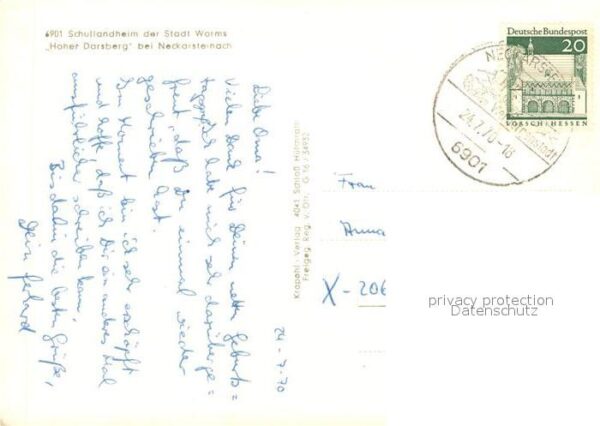 6901 Schullandheim der Stadt Worms
„Hoher Darsberg" bei Neckarsteinach
24-7-70
Liebe Oma!
Vielen Dank für Deinen netten Geburts=
tagsgruß habe mich sehr darüber ge=
freut, daß Du einmal wieder
geschrieben hast.
Im Moment bin ich sehr erschöpft
und hoffe daß ich Dir ein anderes Mal
ausführlicher schreiben kann.
Bis dahin die besten Grüße,
Dein
Krapohl-Verlag 4041 Schloß Hülchrath
Freigeg. Reg. v. Ofr. G 16 / 34932
Deutsche Bundespost
20
LORSCH/HESSEN
24.7.70-18
6901
Frau
Anna
X-206
privacy protection
Datenschutz